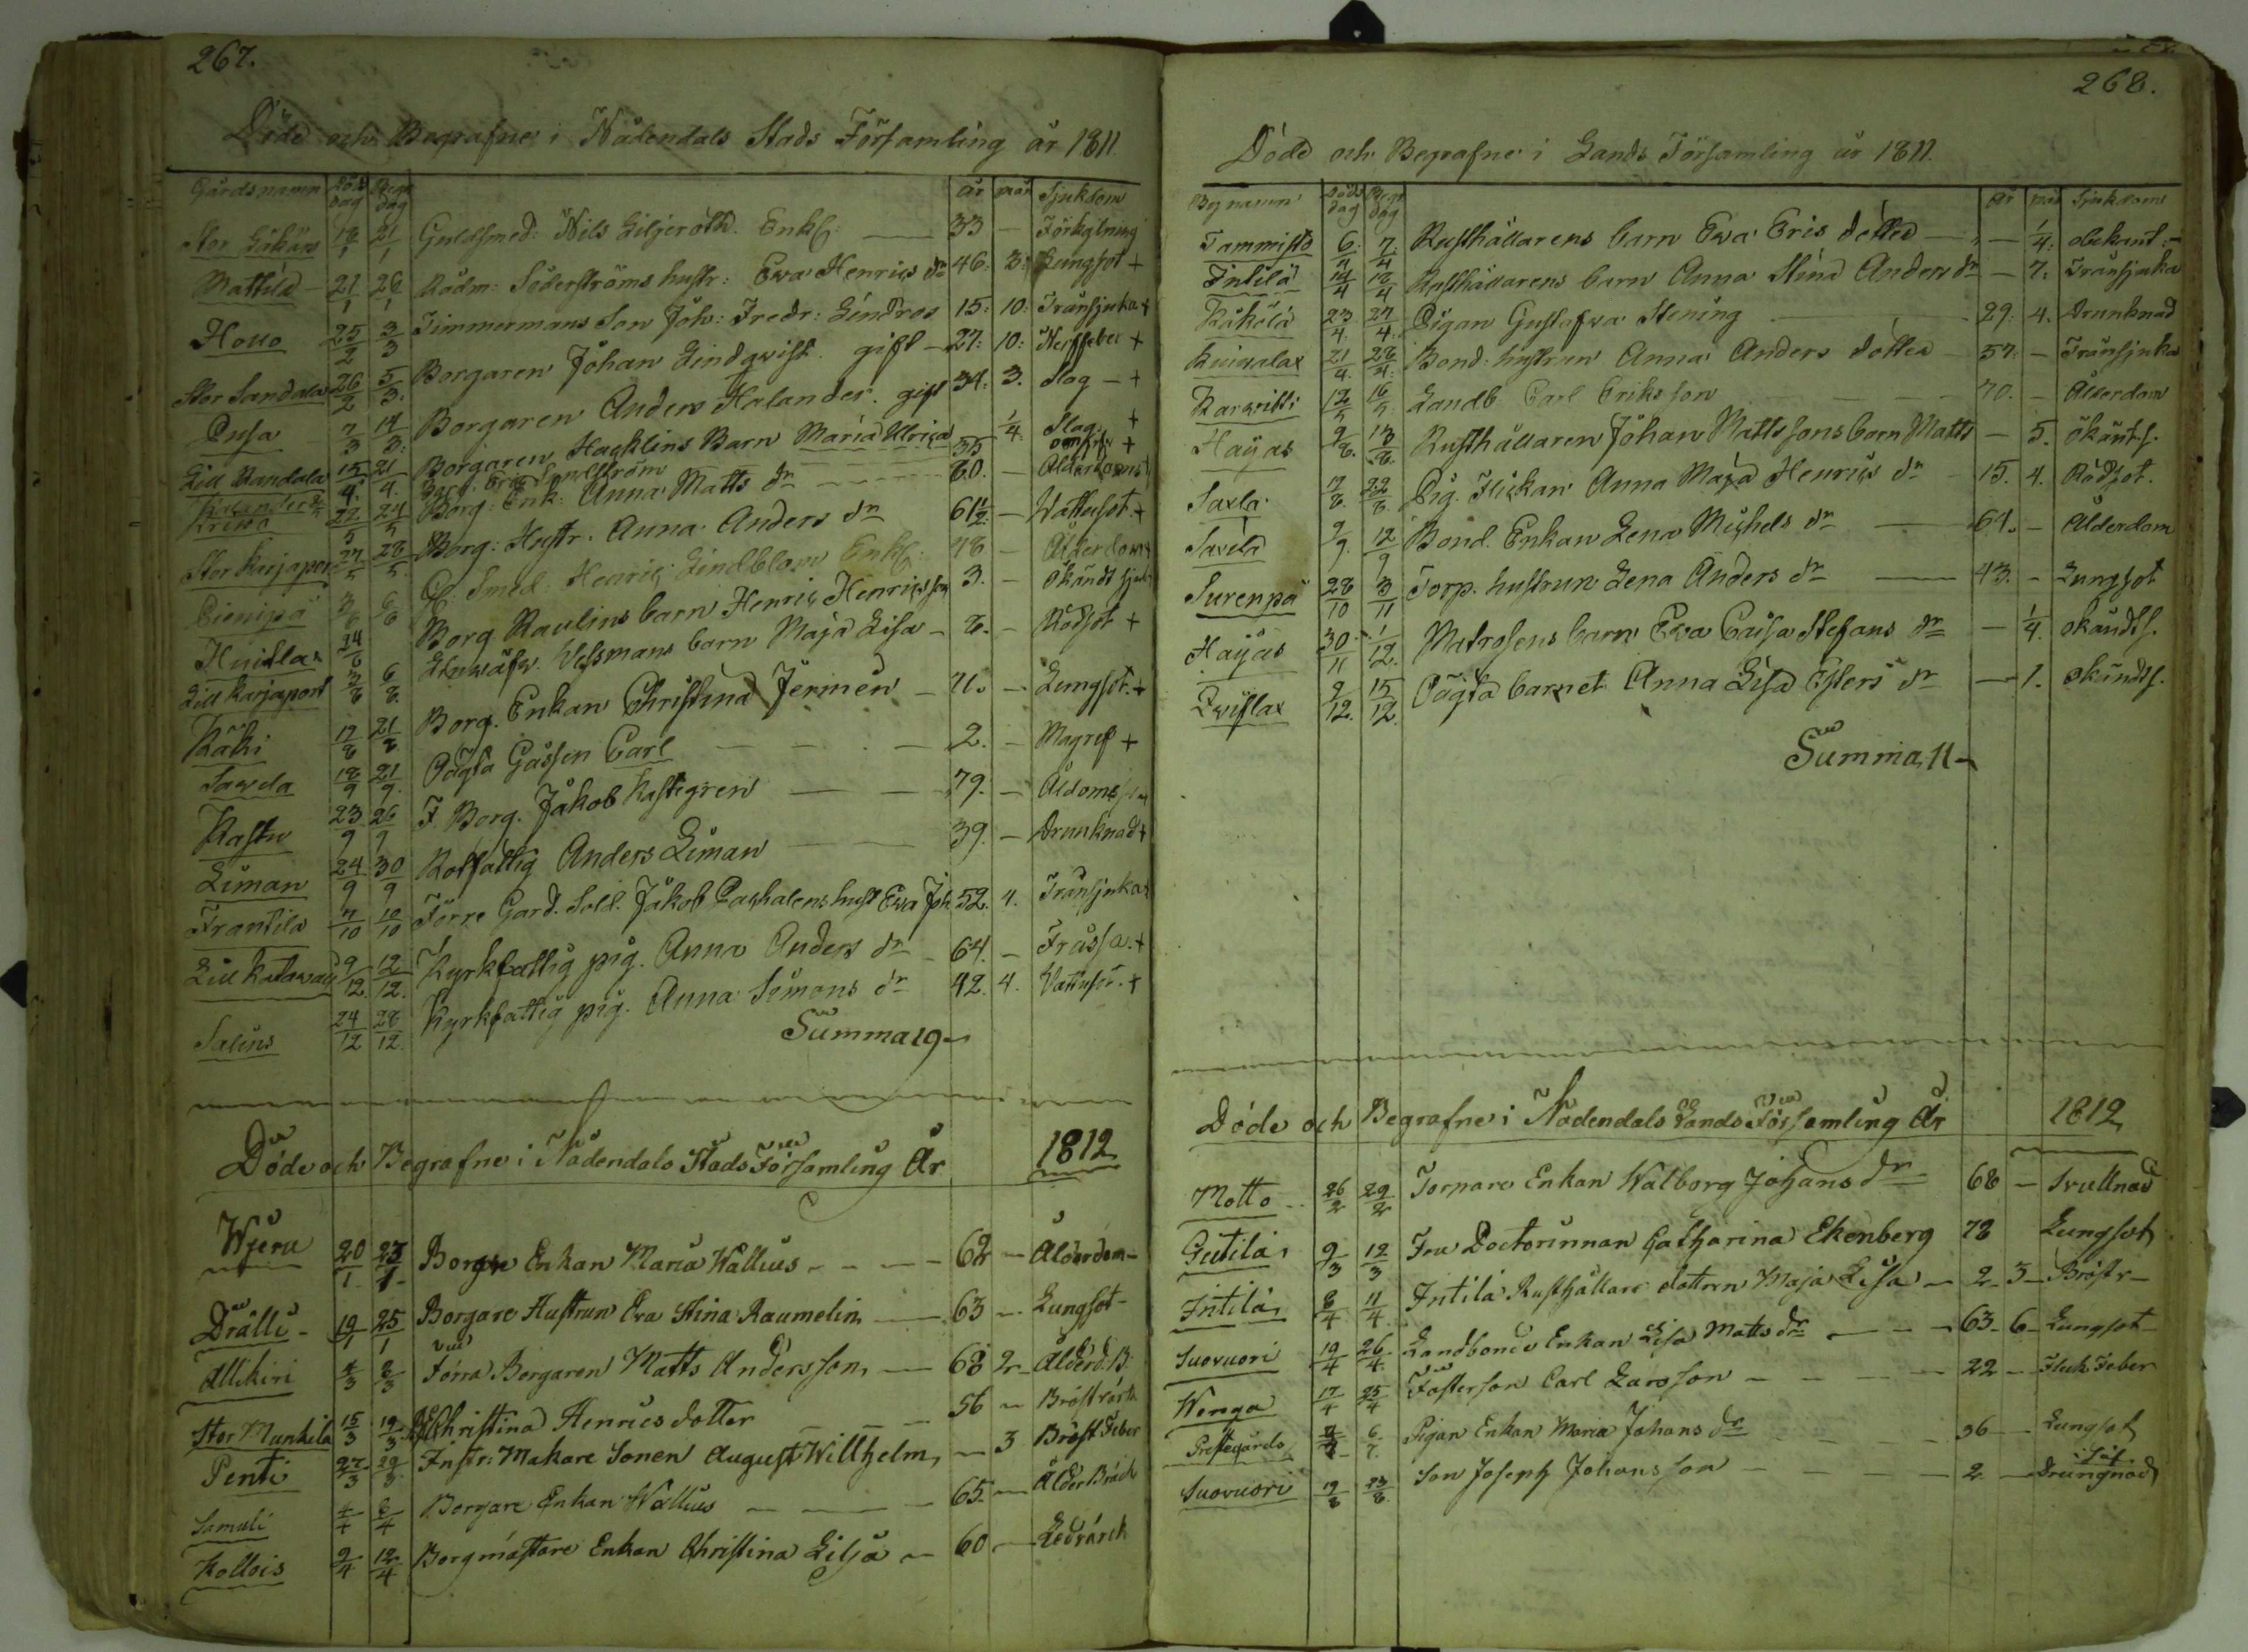 267.
Döde och Begrafne i Nådendals Stads Församling år 1811.
Gårdsnamn Döds dag Begr dag år mån Sjukdom
Guldsmed: Nils Liljeroth Enkl: 33 — Förkylning
Mattila 21/1 26/1 Rådm: Söderströms hustr: Ewa Henrics dr 46. 3. Lungsot +
Houo 25/2 3/3 Timmermans Son Joh: Fredr: Lindros 15: 10: Trånsjuka +
Stor Sandala 26/2 5/3 Borgaren Johan Lindqwist gift — 27: 10: Nerffeber +
Pusa 7/3 14/3 Borgaren Anders Helander. gift 34: 3. Slag — +
Lill Randala 15/4 21/4 Borgaren Hacklins Barn Maria Ulrica 1/4 Slag. +
55
Krewa 22/5 24/5 Borg: Enk: Anna Matts dr 60. — Alderdoms
Stor Karjaport 24/5 28/5 Borg: Hustr. Anna Anders dr 61 1/2 — Wattusot. +
Pienipä 3/6 6/6 Smed Henric Lindblom Enkl: 48 — Alderdoms
Borg Raulins barn Henric Henricsson 3. — Okändt sjuk
Huitla 24/6 Wessmans barn Maja Lisa — 8. — Rödsot +
Lill Karjaport 3/8 6/8 Borg. Enkan Christina Jermen — — Lungsot. +
Käki 17/8 21/8 Oägta Gåssen Carl 2. — Magref +
Sawela 18/9 21/9 F. Borg. Jakob Kastegren 79. — Åldoms
Kastu 23/9 26/9 Rotfattig Anders Liman 39. — Drunknad +
Liman 24/9 30/9 Förre Gard. Sold. Jakob hust Ewa Joh 52. 4. Trånsjuka
Frantila 7/10 10/10 Kyrkfattig pig. Anna Anders dr 64. — Frassa. +
Lill 9/12 12/12 Kyrkfattig pig. Anna Simons dr 42. 4. Vattusot. +
Salins 24/12 28/12
Summa 19
Döde och Begrafne i Nådendals Stads Församling År 1812
Wjeru 20/1 23/1 Borgre Enkan Maria Wallius 62 — Ålderdom —
Drälli — 19/1 25/1 Borgare Hustrun Eva Stina Raumelin — 63 — Lungsot —
Allikiri 4/3 8/3 Förra Borgaren Matts Andersson — 68 2 Ålderd. B.
Stor Munkila 15/3 19/3 Christina Henrics dotter 56 — Bröstvärk
Penti 27/3 29/3 Instr: Makare Sonen August Willhelm, — 3 Bröst Feber
Samuli 4/4 8/4 Borgare Enkan Wallius 65. — Ålder Bräck
Kollois 9/4 12/4 Borgmästare Enkan Christina Lilja — 60 — Ledvärck
268.
Döde och Begrafne i Lands Församling år 1811.
By namn Döds dag Begr dag år mån Sjukdom
Tammisto 6/4 7/4 Rusthållarens barn Ewa Eris dotter — 1/4: obekant: —
Intilä 14/4 18/4 Rusthållarens barn Anna Stina Anders dr — 7: Trånsjuka
Käkölä 23/4 27/4 Pigan Gustafwa Stening 29: 4. Drunknad
21/4 28/4 Bond. hustrun Anna Anders dotter 57: — Trånsjuka
Karwitti 12/5 16/5 Landb Carl Eriksson 70. — Ålderdom
Hayas 9/8 13/8 Rusthållaren Johan Mattssons barn Matts — 5. Okändt s.
Saxla 17/8 22/8 Pig. Flickan Anna Maja Henrics dr 15. 4. Rödsot.
Savila 9/9 12/9 Bond. Enkan Lena Michels dr 61. — Alderdom
Surenpä 28/10 3/11 Torp. hustrun Lena Anders dr 43. — Lungsot
Hayas 30/11 1/12 Matrosens barn Ewa Caisa Stefans dr — 1/4. okändt s.
9/12 15/12 Oägta barnet Anna Lisa dr — 1. okändt s.
Summa 11
Döde och Begrafne i Nådendals Lands Församling År 1812
Motto 26/2 29/2 Torpare Enkan Walborg Johans dr 68 — Svullnad
Gutila 9/3 12/3 Fru Doctorinnan Catharina Ekenberg 78 Lungsot
Intilä 8/4 11/4 Intilä Rusthållare dottern Maja Lisa — 2 — 3 — Bröstr —
Suovuori 19/4 26/4 Landbonde Enkan Lisa Matts dr 63 — 6 — Lungsot —
Wenga 17/4 25/4 Fosterson Carl Larsson 22 — Feber
Prestegårds Pigan Enkan Maria Johans dr 36 — Lungsot
Suovuori 19/8 23/8 Son Joseph Johansson 2 — Drungnad